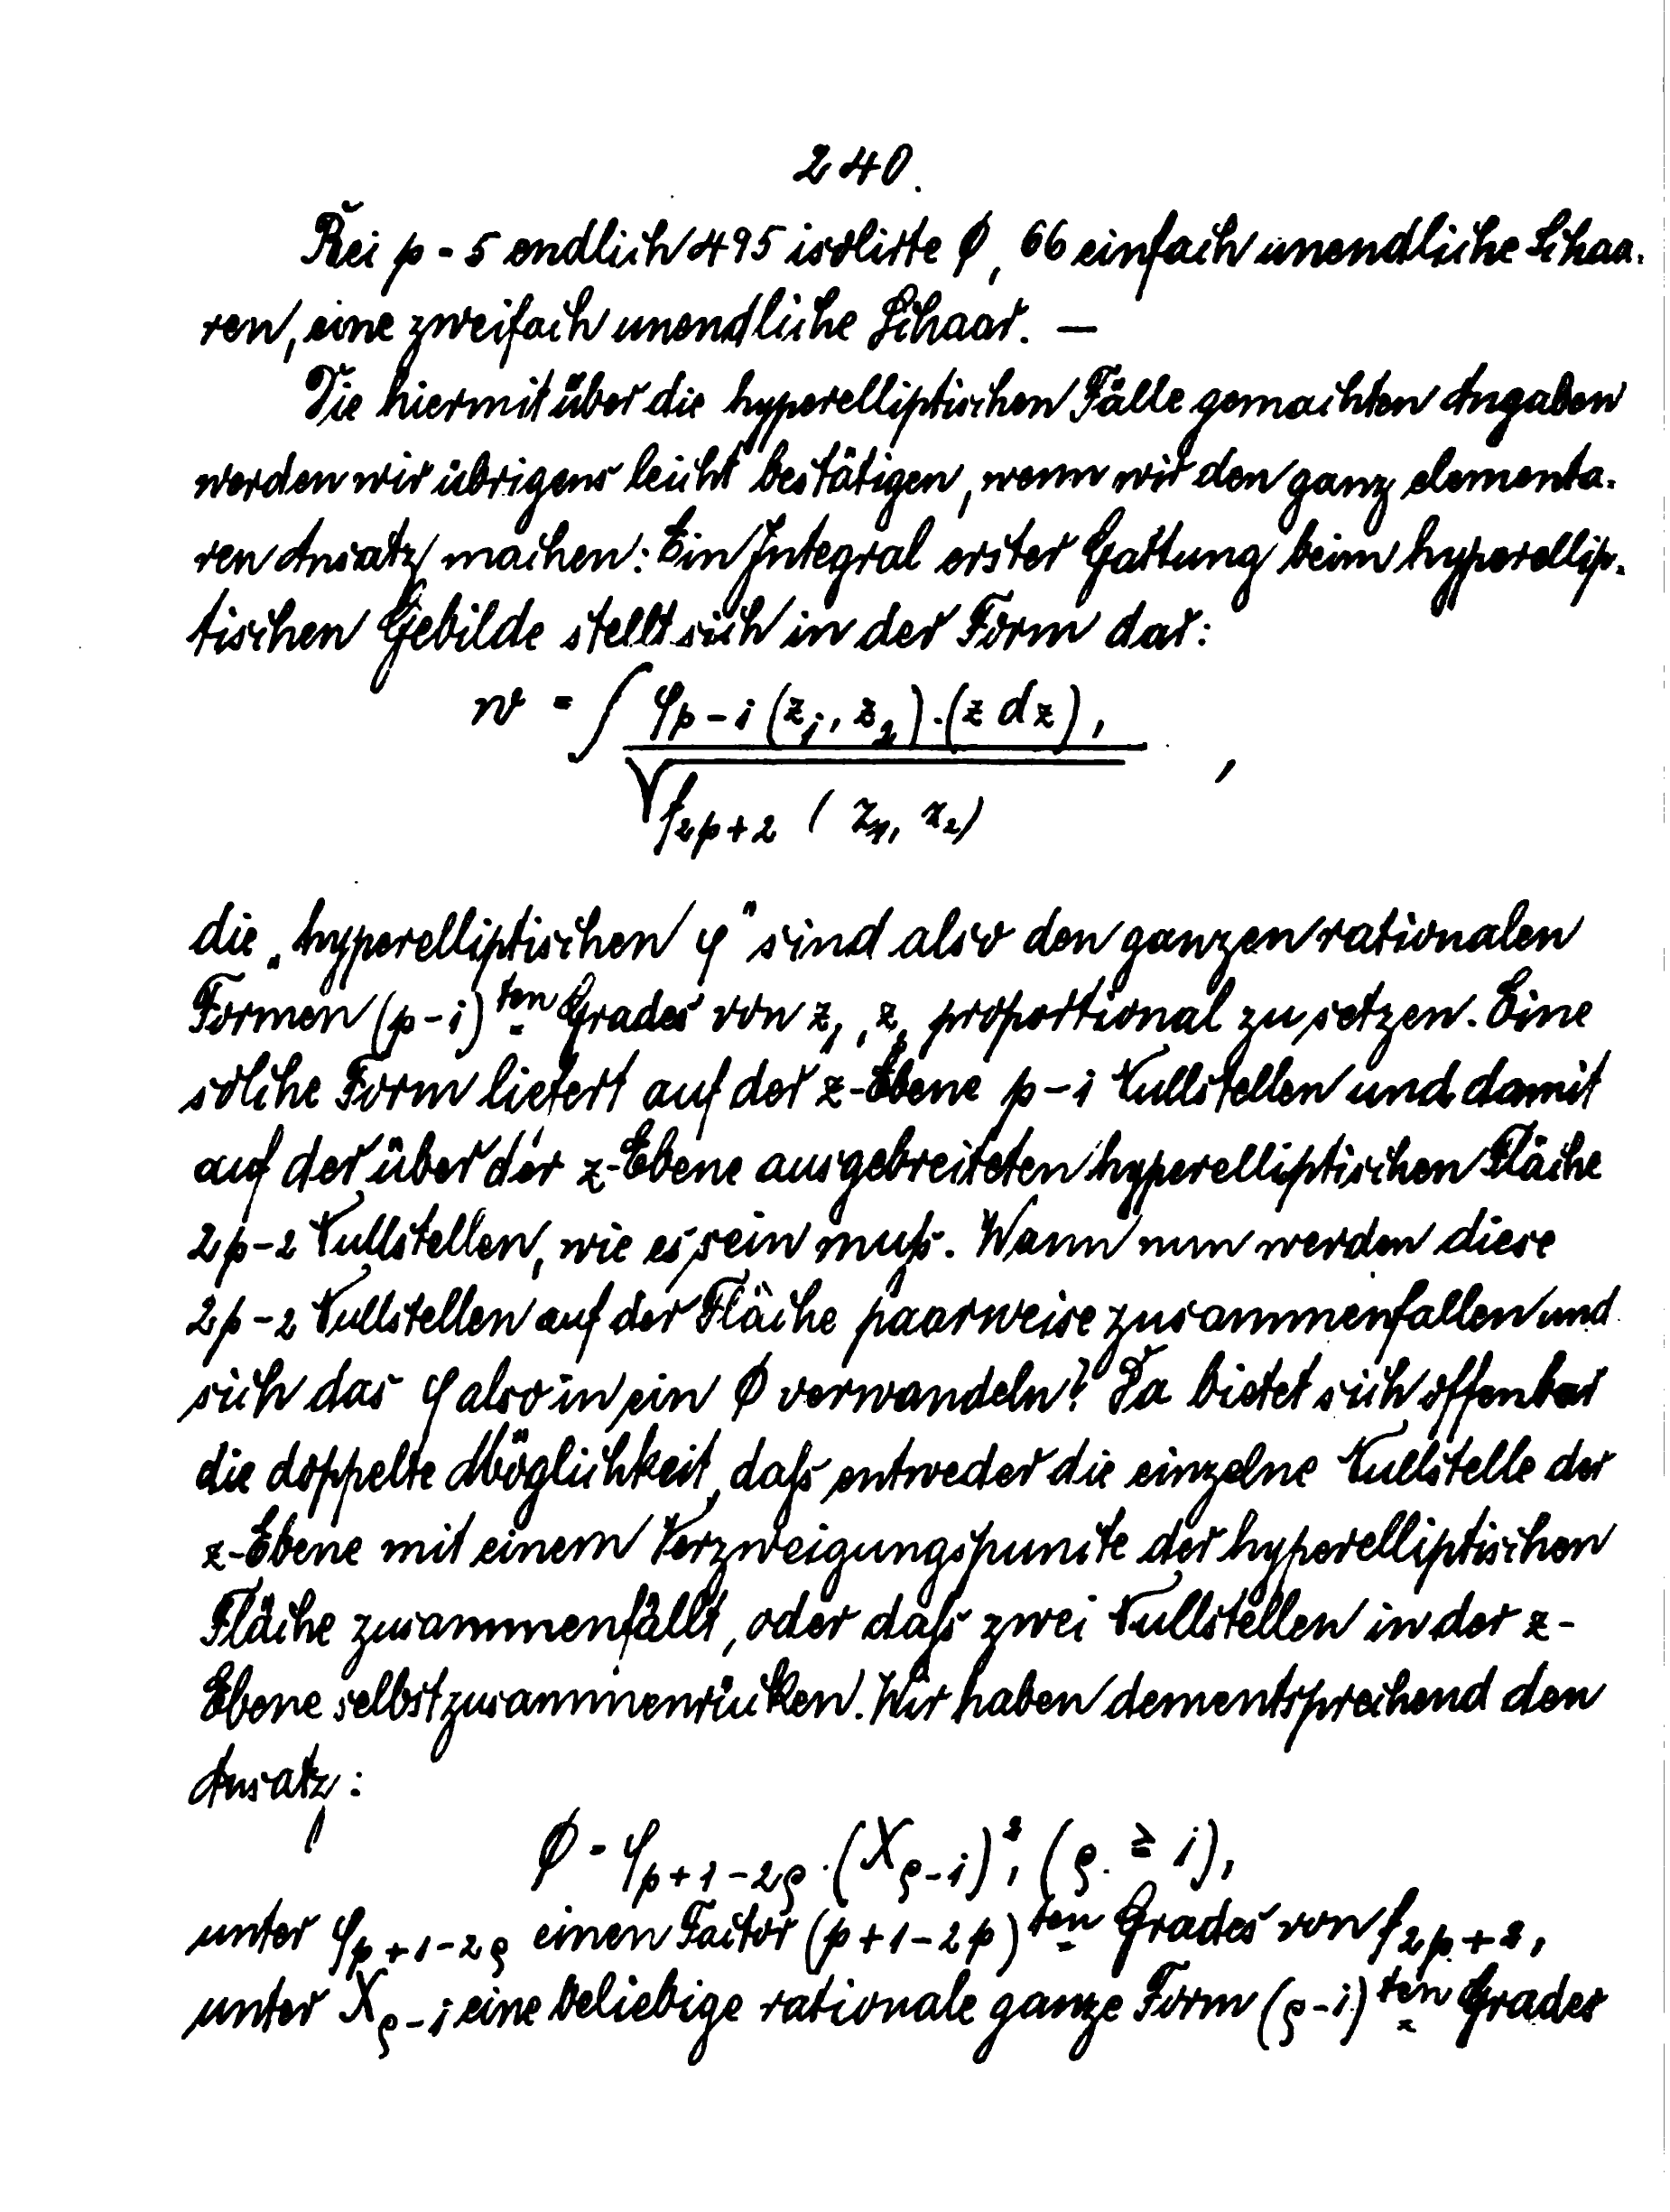 240.
Bei p = 5 endlich 495 isolirte Φ, 66 einfach unendliche Schaa-
ren, eine zweifach unendliche Schaar. —
Die hiermit über die hyperelliptischen Fälle gemachten Angaben
werden wir übrigens leicht bestätigen, wenn wir den ganz elementa-
ren Ansatz machen: Ein Integral erster Gattung beim hyperellip-
tischen Gebilde stellt sich in der Form dar:
w = ∫ φ_{p-1} (z_1, z_2) . (z dz),
√f_{2p+2} (z_1, z_2) ,
die „hyperelliptischen φ" sind also den ganzen rationalen
Formen (p-1)ten Grades von z_1, z_2 proportional zu setzen. Eine
solche Form liefert auf der z-Ebene p-1 Nullstellen und damit
auf der über der z-Ebene ausgebreiteten hyperelliptischen Fläche
2p-2 Nullstellen, wie es sein muß. Wann nun werden diese
2p-2 Nullstellen auf der Fläche paarweise zusammenfallen und
sich das φ also in ein Φ verwandeln? Da bietet sich offenbar
die doppelte Möglichkeit, daß entweder die einzelne Nullstelle der
z-Ebene mit einem Verzweigungspuncte der hyperelliptischen
Fläche zusammenfällt, oder daß zwei Nullstellen in der z-
Ebene selbst zusammenrücken. Wir haben dementsprechend den
Ansatz:
Φ = φ_{p+1-2ρ} . (X_{ρ-1})^2, (ρ. ≥ 1),
unter φ_{p+1-2ρ} einen Factor (p+1-2p)ten Grades von f_{2p+2},
unter X_{ρ-1} eine beliebige rationale ganze Form (ρ-1)ten Grades